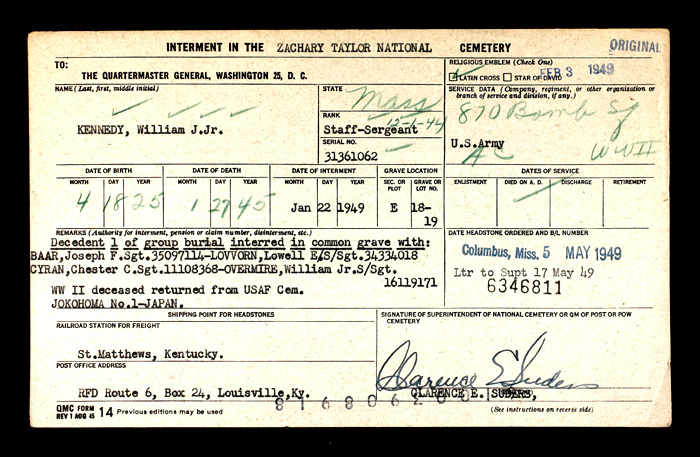 INTERMENT IN THE ZACHARY TAYLOR NATIONAL CEMETERY
ORIGINAL
TO:
THE QUARTERMASTER GENERAL, WASHINGTON 25, D. C.
RELIGIOUS EMBLEM (Check One)
LATIN CROSS STAR OF DAVID
FEB 3 1949
NAME (Last, first, middle initial)
KENNEDY, William J.Jr.
STATE
Mass
RANK
12-1-44
Staff-Sergeant
SERIAL NO.
31361062
SERVICE DATA (Company, regiment, or other organization or branch of service and division, if any.)
870 Bomb Sq
U.S.Army
AC WWII
DATE OF BIRTH DATE OF DEATH DATE OF INTERMENT GRAVE LOCATION DATES OF SERVICE
MONTH DAY YEAR MONTH DAY YEAR MONTH DAY YEAR SEC. OR PLOT GRAVE OR LOT NO. ENLISTMENT DIED ON A. D. DISCHARGE RETIREMENT
4 18 25 1 27 45 Jan 22 1949 E 18-
19
REMARKS (Authority for interment, pension or claim number, disinterment, etc.)
Decedent 1 of group burial interred in common grave with:
BAAR,Joseph F.Sgt.35097114-LOVVORN,Lowell E/S/Sgt.34334018
CYRAN,Chester C.Sgt.11108368-OVERMIRE,William Jr.S/Sgt.
16119171
WW II deceased returned from USAF Cem.
JOKOHOMA No.1-JAPAN.
DATE HEADSTONE ORDERED AND B/L NUMBER
Columbus, Miss. 5 MAY 1949
Ltr to Supt 17 May 49
6346811
SHIPPING POINT FOR HEADSTONES
RAILROAD STATION FOR FREIGHT
St.Matthews, Kentucky.
POST OFFICE ADDRESS
RFD Route 6, Box 24, Louisville,Ky.
SIGNATURE OF SUPERINTENDENT OF NATIONAL CEMETERY OR QM OF POST OR POW CEMETERY
Clarence E Suders
CLARENCE E. SUDERS,
QMC FORM
REV 1 AUG 45 14 Previous editions may be used
(See instructions on reverse side)